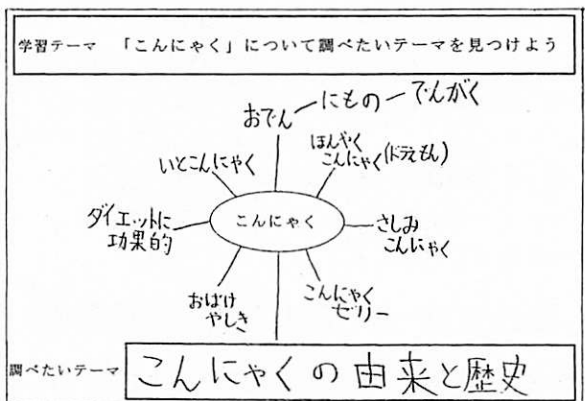 学習テーマ 「こんにゃく」について調べたいテーマを見つけよう
おでん―にもの―でんがく
ほんやく
こんにゃく(ドラえもん)
いとこんにゃく
こんにゃく
ダイエットに
功果的
さしみ
こんにゃく
おばけ
やしき
こんにゃく
ゼリー
調べたいテーマ こんにゃくの由来と歴史